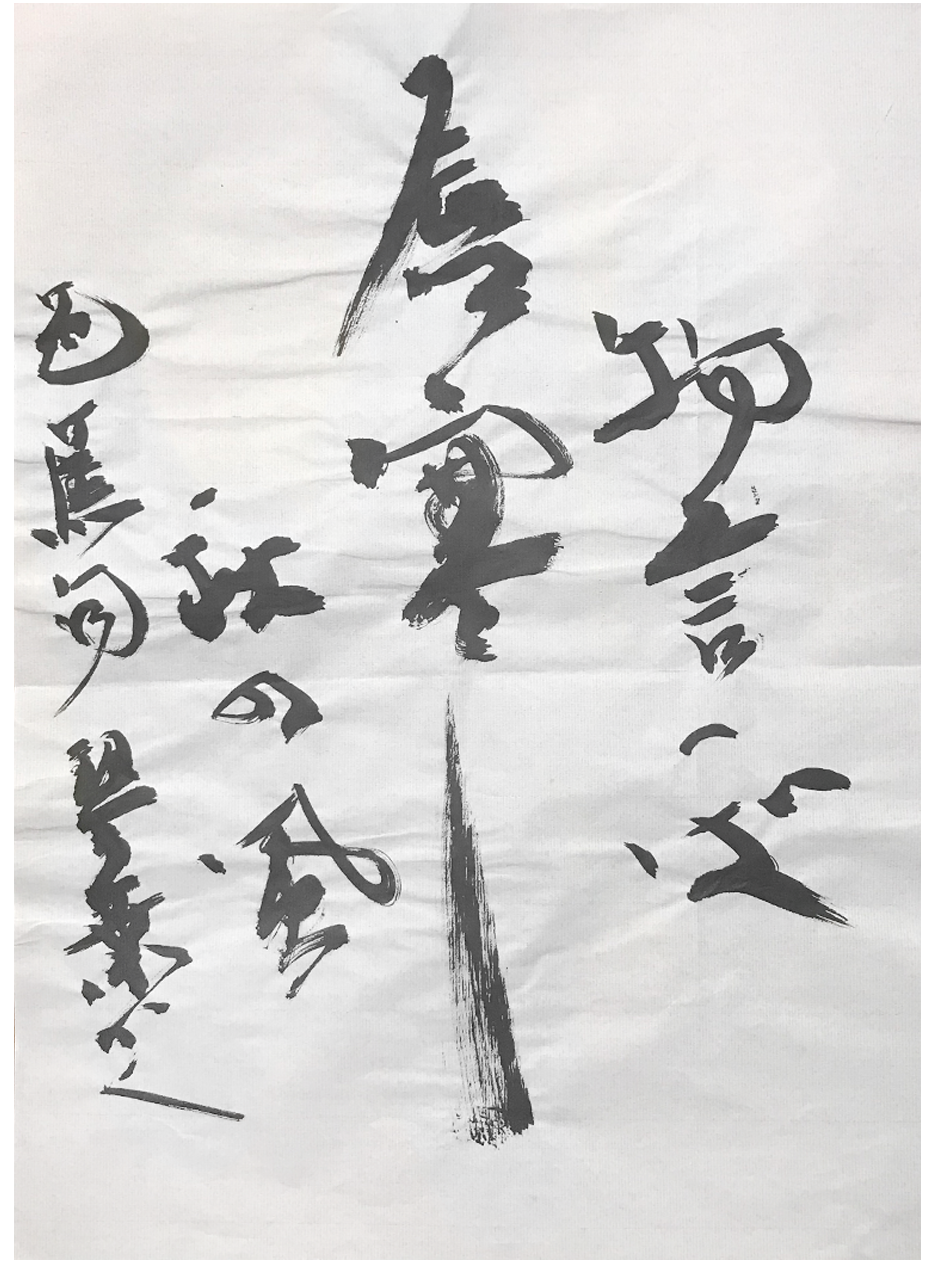 物言へば
唇寒し
秋の風
芭蕉句